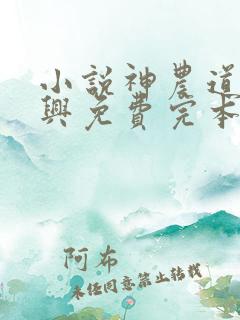 小説神農道
興免費完本
阿布
未经同意禁止转载